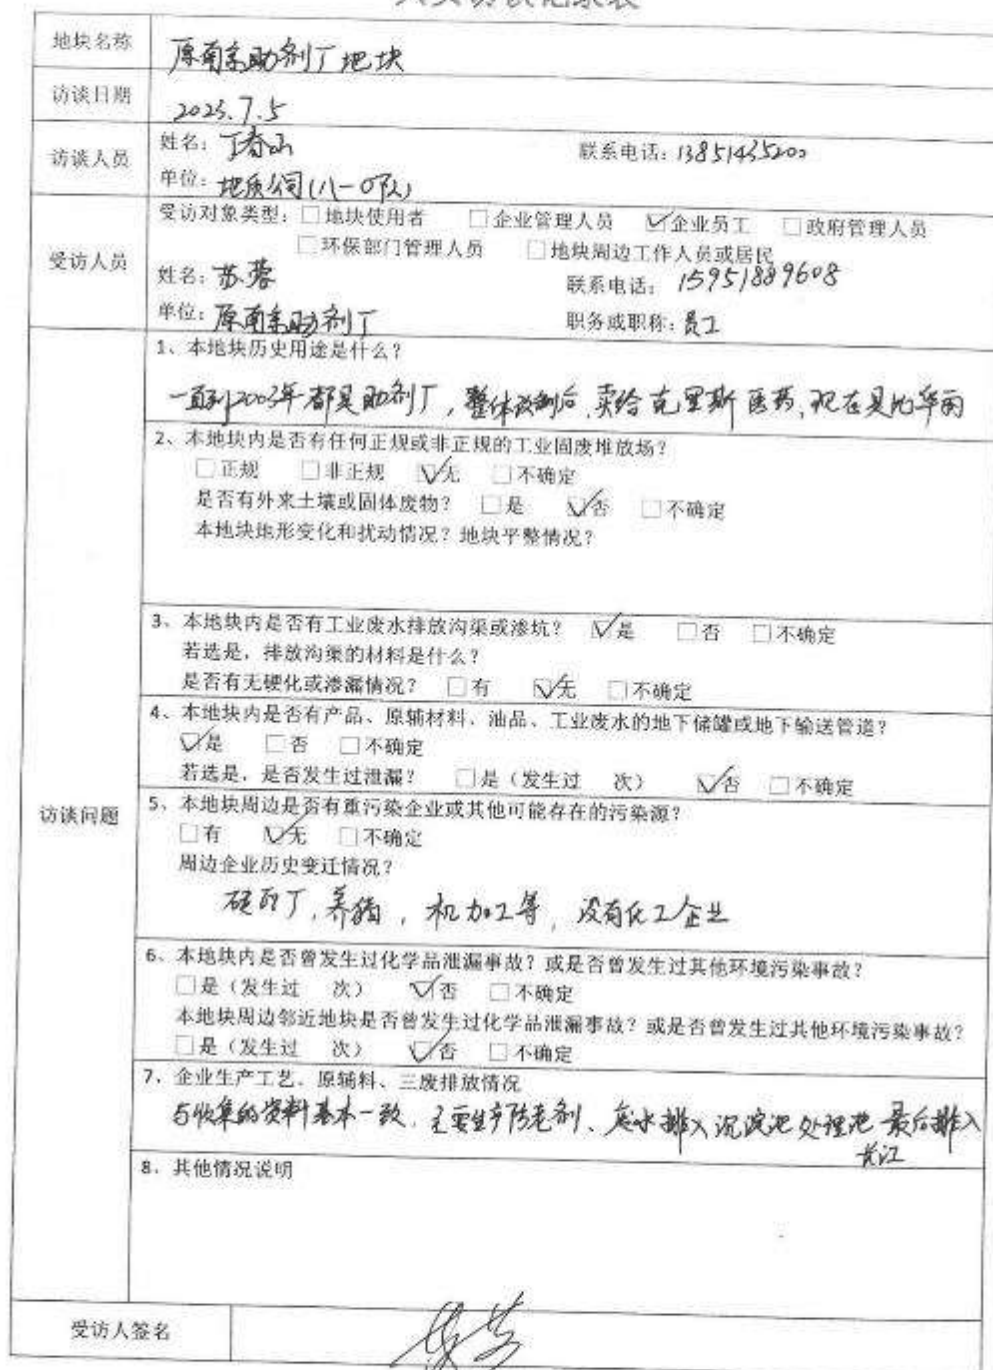 人员访谈记录表
地块名称 原南京助剂厂地块
访谈日期 2023.7.5
访谈人员 姓名： 联系电话：13851435200
单位：地质公司(八一〇队)
受访人员 受访对象类型：□地块使用者 □企业管理人员 ☑企业员工 □政府管理人员
□环保部门管理人员 □地块周边工作人员或居民
姓名：苏蓉 联系电话：15951889608
单位：原南京助剂厂 职务或职称：员工
访谈问题
1、本地块历史用途是什么？
一直到2003年都是助剂厂，整体改制后，卖给克里斯医药，现在是
2、本地块内是否有任何正规或非正规的工业固废堆放场？
□正规 □非正规 ☑无 □不确定
是否有外来土壤或固体废物？ □是 ☑否 □不确定
本地块地形变化和扰动情况？地块平整情况？
3、本地块内是否有工业废水排放沟渠或渗坑？ ☑是 □否 □不确定
若选是，排放沟渠的材料是什么？
是否有无硬化或渗漏情况？ □有 ☑无 □不确定
4、本地块内是否有产品、原辅材料、油品、工业废水的地下储罐或地下输送管道？
☑是 □否 □不确定
若选是，是否发生过泄漏？ □是（发生过 次） ☑否 □不确定
5、本地块周边是否有重污染企业或其他可能存在的污染源？
□有 ☑无 □不确定
周边企业历史变迁情况？
养猪，机加工等，没有化工企业
6、本地块内是否曾发生过化学品泄漏事故？或是否曾发生过其他环境污染事故？
□是（发生过 次） ☑否 □不确定
本地块周边邻近地块是否曾发生过化学品泄漏事故？或是否曾发生过其他环境污染事故？
□是（发生过 次） ☑否 □不确定
7、企业生产工艺、原辅料、三废排放情况
与收集的资料基本一致，主要生产防老剂、废水排入沉淀池处理池最后排入
长江
8、其他情况说明
受访人签名